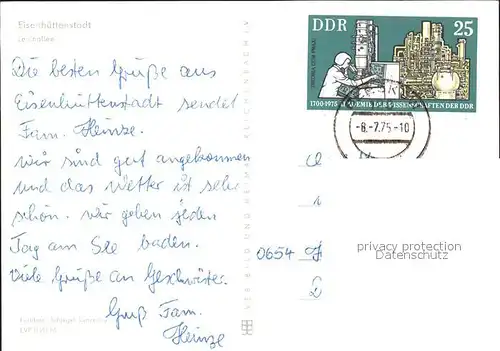 Eisenhüttenstadt
Leninallee
Die besten Grüße aus
Eisenhüttenstadt sendet
Fam. Heinze.
Wir sind gut angekommen
und das Wetter ist sehr
schön. Wir gehen jeden
Tag am See baden.
Viele Grüße an Geschwister.
Gruß Fam.
Heinze
VEB BILD UND HEIMAT REICHENBACH I. V.
DDR 25
THEORIA CUM PRAXI
1700-1975 AKADEMIE DER WISSENSCHAFTEN DER DDR
-8.-7.75-10
0654
privacy protection
Datenschutz